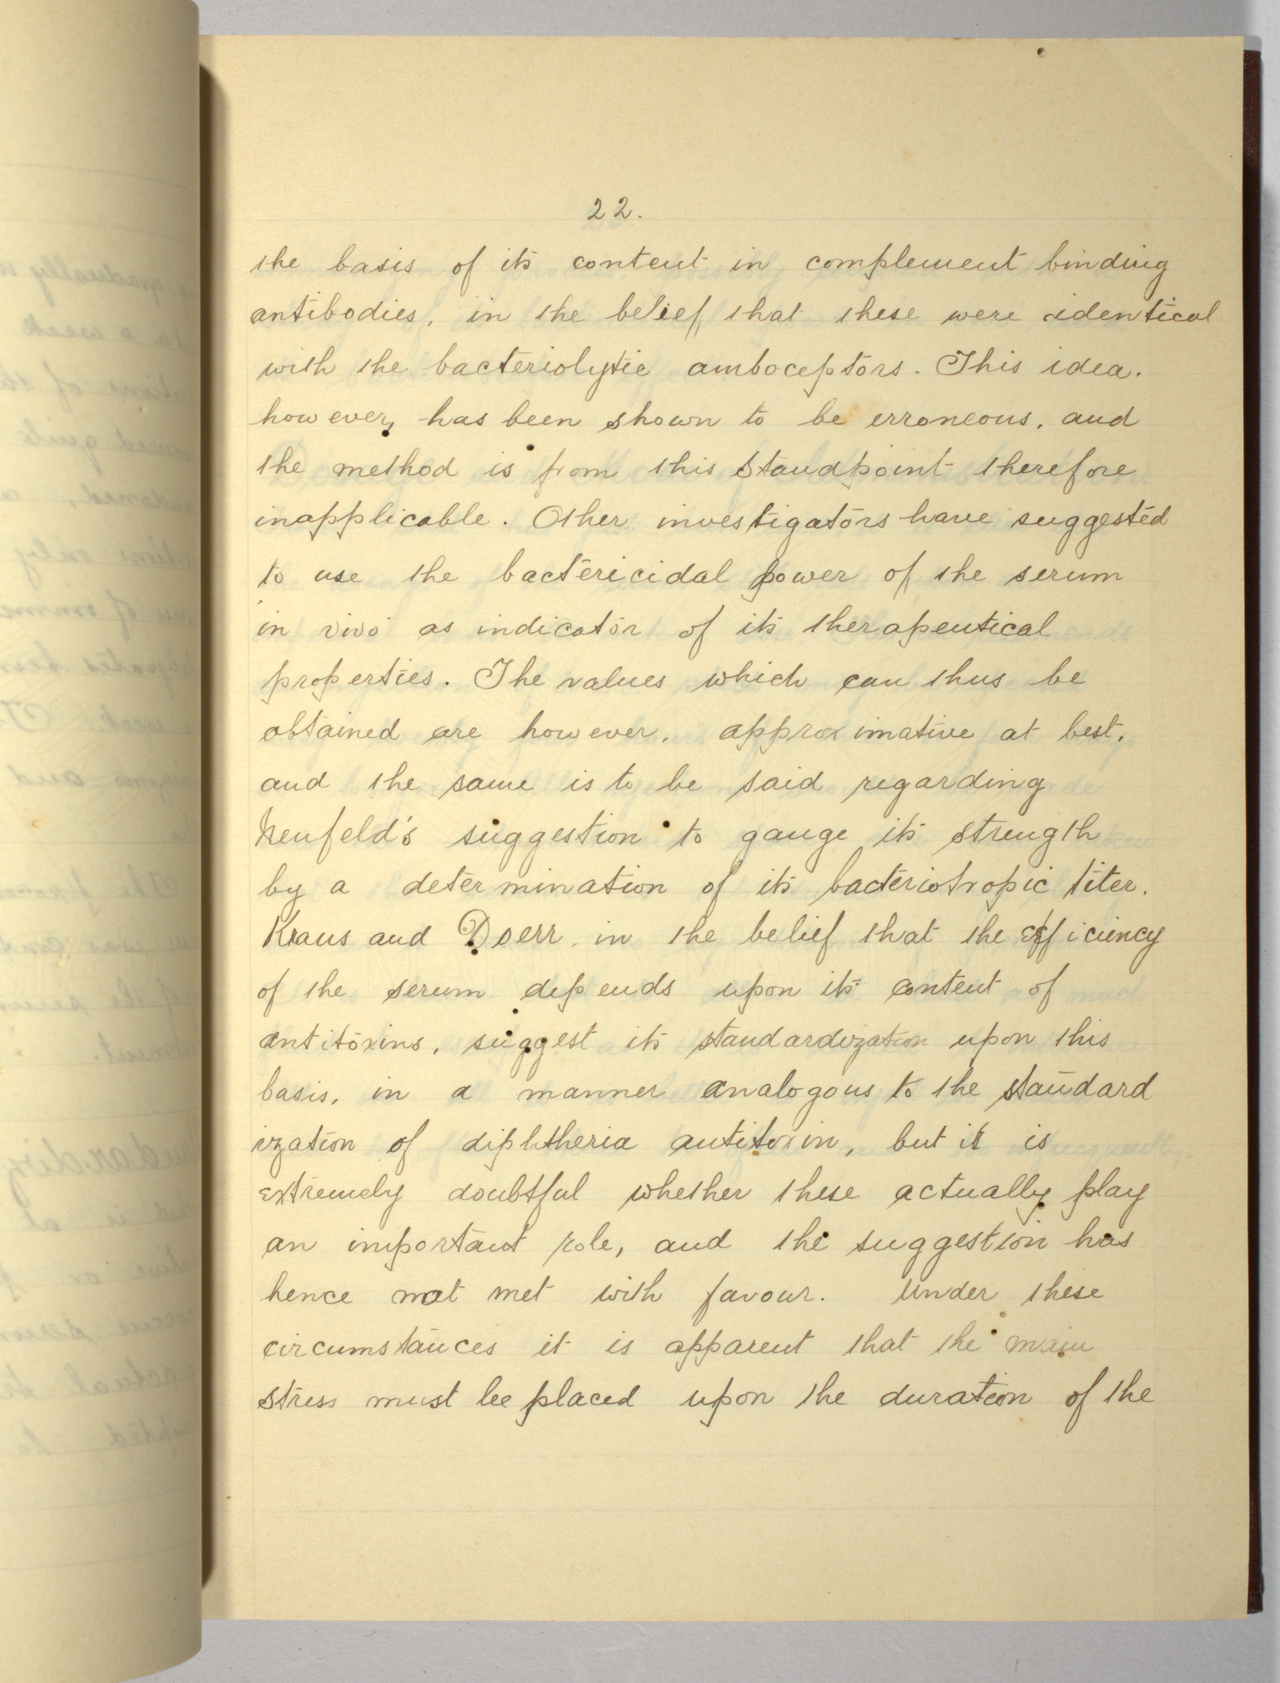 22.
the basis of its content in complement binding
antibodies, in the belief that these were identical
with the bacteriolytic amboceptors. This idea.
however, has been shown to be erroneous, and
the method is from this standpoint therefore
inapplicable. Other investigators have suggested
to use the bactericidal power of the serum
in vivo as indicator of its therapeutical
properties. The values which can thus be
obtained are however, approximative at best,
and the same is to be said regarding
Neufeld's suggestion to gauge its strength
by a determination of its bacteriotropic titer.
Kraus and Doerr, in the belief that the efficiency
of the serum depends upon its content of
antitoxins, suggest its standardization upon this
basis, in a manner analogous to the standard
ization of diphtheria antitoxin, but it is
extremely doubtful whether these actually play
an important role, and the suggestion has
hence not met with favour. Under these
circumstances it is apparent that the main
stress must be placed upon the duration of the